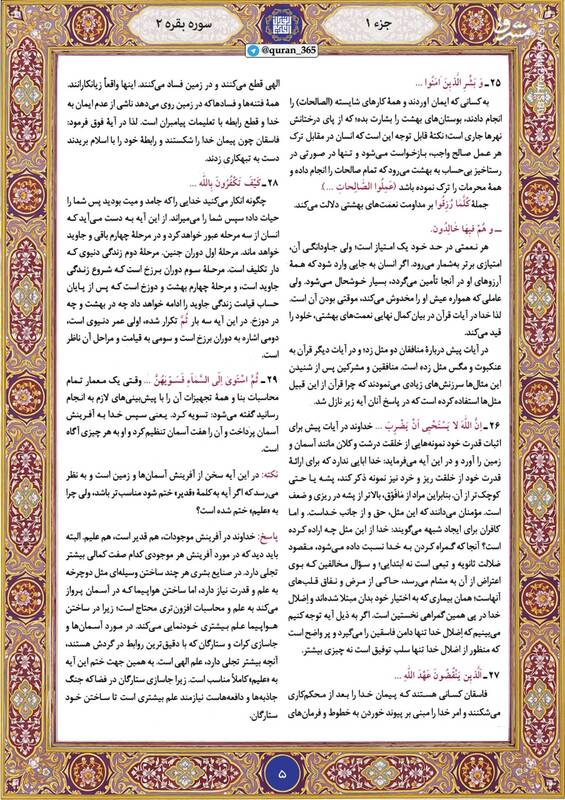 جزء ۱
سوره بقره ۲
@quran_365
مشرق
۲۵ـ وَ بَشِّرِ الَّذینَ آمَنُوا ...
به کسانی که ایمان آوردند و همهٔ کارهای شایسته (الصالحات) را
انجام دادند، بوستان‌های بهشت را بشارت بده؛ که از پای درختانش
نهرها جاری است؛ نکتهٔ قابل توجه این است که انسان در مقابل ترک
هر عمل صالح واجب، بازخواست می‌شود و تنها در صورتی در
رستاخیز بی‌حساب به بهشت می‌رود که تمام صالحات را انجام داده و
همهٔ محرمات را ترک نموده باشد (عَمِلُوا الصَّالِحاتِ ...).
جملهٔ كُلَّمَا رُزِقُوا بر مداومت نعمت‌های بهشتی دلالت می‌کند.
ـ و هُمْ فیها خالِدُونَ.
هر نعمتی در حد خود یک امتیاز است؛ ولی جاودانگی آن،
امتیازی برتر به‌شمار می‌رود. اگر انسان به جایی وارد شود که همهٔ
آرزوهای او در آنجا تأمین می‌گردد، بسیار خوشحال می‌شود. ولی
عاملی که همواره عیش او را مخدوش می‌کند، موقتی بودن آن است.
لذا خدا در آیات قرآن در بیان کمال نهایی نعمت‌های بهشتی، خلود را
قید می‌کند.
در آیات پیش دربارهٔ منافقان دو مثل زد؛ و در آیات دیگر قرآن به
عنکبوت و مگس مثل زده است. منافقین و مشرکین پس از شنیدن
این مثل‌ها سرزنش‌های زیادی می‌نمودند که چرا قرآن از این قبیل
مثل‌ها استفاده کرده است که در پاسخ آنان آیه زیر نازل شد.
۲۶ـ إِنَّ اللَّهَ لا یَسْتَحْیی أَنْ یَضْرِبَ ... خداوند در آیات پیش برای
اثبات قدرت خود نمونه‌هایی از خلقت درشت و کلان مانند آسمان و
زمین را آورد و در این آیه می‌فرماید: خدا ابایی ندارد که برای ارائهٔ
قدرت خود از خلقت ریز و خرد نیز نمونه ذکر کند، پشه یا حتی
کوچک‌تر از آن. بنابراین مراد از مافَوْق، بالاتر از پشه در ریزی و ضعف
است. مؤمنان می‌دانند که این مثل، حق و از جانب خداست. و اما
کافران برای ایجاد شبهه می‌گویند: خدا از این مثل چه اراده کرده
است؟ آنجا که گمراه کردن به خدا نسبت داده می‌شود، مقصود
ضلالت ثانویه و تبعی است نه ابتدایی؛ و سؤال مخالفین که بوی
اعتراض از آن به مشام می‌رسد، حاکی از مرض و نفاق قلب‌های
آنهاست؛ همان بیماری که به اختیار خود بدان مبتلا شده‌اند و إضلال
خدا در پی همین گمراهی نخستین است. اگر به ذیل آیه توجه کنیم
می‌بینیم که إضلال خدا تنها دامن فاسقین را می‌گیرد و پر واضح است
که منظور از اضلال خدا تنها سلب توفیق است نه چیزی بیشتر.
۲۷ـ الَّذِینَ یَنْقُضُونَ عَهْدَ اللهِ ...
فاسقان کسانی هستند که پیمان خدا را بعد از محکم‌کاری
می‌شکنند و امر خدا را مبنی بر پیوند خوردن به خطوط و فرمان‌های
الهی قطع می‌کنند و در زمین فساد می‌کنند. اینها واقعاً زیانکارانند.
همهٔ فتنه‌ها و فسادها که در زمین روی می‌دهد ناشی از عدم ایمان به
خدا و قطع رابطه با تعلیمات پیامبران است. لذا در آیهٔ فوق فرمود:
فاسقان چون پیمان خدا را شکستند و رابطهٔ خود را با اسلام بریدند
دست به تبهکاری زدند.
۲۸ـ کَیْفَ تَکْفُرُونَ بِاللهِ ...
چگونه انکار می‌کنید خدایی را که جامد و میت بودید پس شما را
حیات داد؛ سپس شما را می‌میراند. از این آیه به دست می‌آید که
انسان از سه مرحله عبور خواهد کرد و در مرحلهٔ چهارم باقی و جاوید
خواهد ماند. مرحلهٔ اول دوران جنین. مرحلهٔ دوم زندگی دنیوی که
دار تکلیف است. مرحلهٔ سوم دوران برزخ است که شروع زندگی
جاوید است، و مرحلهٔ چهارم بهشت و دوزخ است که پس از پایان
حساب قیامت زندگی جاوید را ادامه خواهد داد چه در بهشت و چه
در دوزخ. در این آیه سه بار ثُمَّ تکرار شده، اولی عمر دنیوی است،
دومی اشاره به دوران برزخ است و سومی به قیامت و مراحل آن ناظر
است.
۲۹ـ ثُمَّ اسْتَوىٰ إِلَى السَّمَاءِ فَسَوّیٰهُنَّ ... وقتی یک معمار تمام
محاسبات بنا و همهٔ تجهیزات آن را با پیش‌بینی‌های لازم به انجام
رسانید گفته می‌شود: تسویه کرد. یعنی سپس خدا به آفرینش
آسمان پرداخت و آن را هفت آسمان تنظیم کرد و او به هر چیزی آگاه
است.
نکته: در این آیه سخن از آفرینش آسمان‌ها و زمین است و به نظر
می‌رسد که اگر آیه به کلمهٔ «قدیر» ختم شود مناسب‌تر باشد، ولی چرا
به «علیم» ختم شده است؟
پاسخ: خداوند در آفرینش موجودات، هم قدیر است، هم علیم. البته
باید دید که در مورد آفرینش هر موجودی کدام صفت کمالی بیشتر
تجلی دارد. در صنایع بشری هر چند ساختن وسیله‌ای مثل دوچرخه
به علم و قدرت نیاز دارد، اما ساختن هواپیما که در آسمان پرواز
می‌کند به علم و محاسبات افزون‌تری محتاج است؛ زیرا در ساختن
هواپیما علم بیشتری خودنمایی می‌کند. در مورد آسمان‌ها و
جاسازی کرات و ستارگان که با دقیق‌ترین روابط در گردش هستند،
آنچه بیشتر تجلی دارد، علم الهی است. به همین جهت ختم این آیه
به «علیم» کاملاً مناسب است. زیرا جاسازی ستارگان در فضا که جنگ
جاذبه‌ها و دافعه‌هاست نیازمند علم بیشتری است تا ساختن خود
ستارگان.
۵